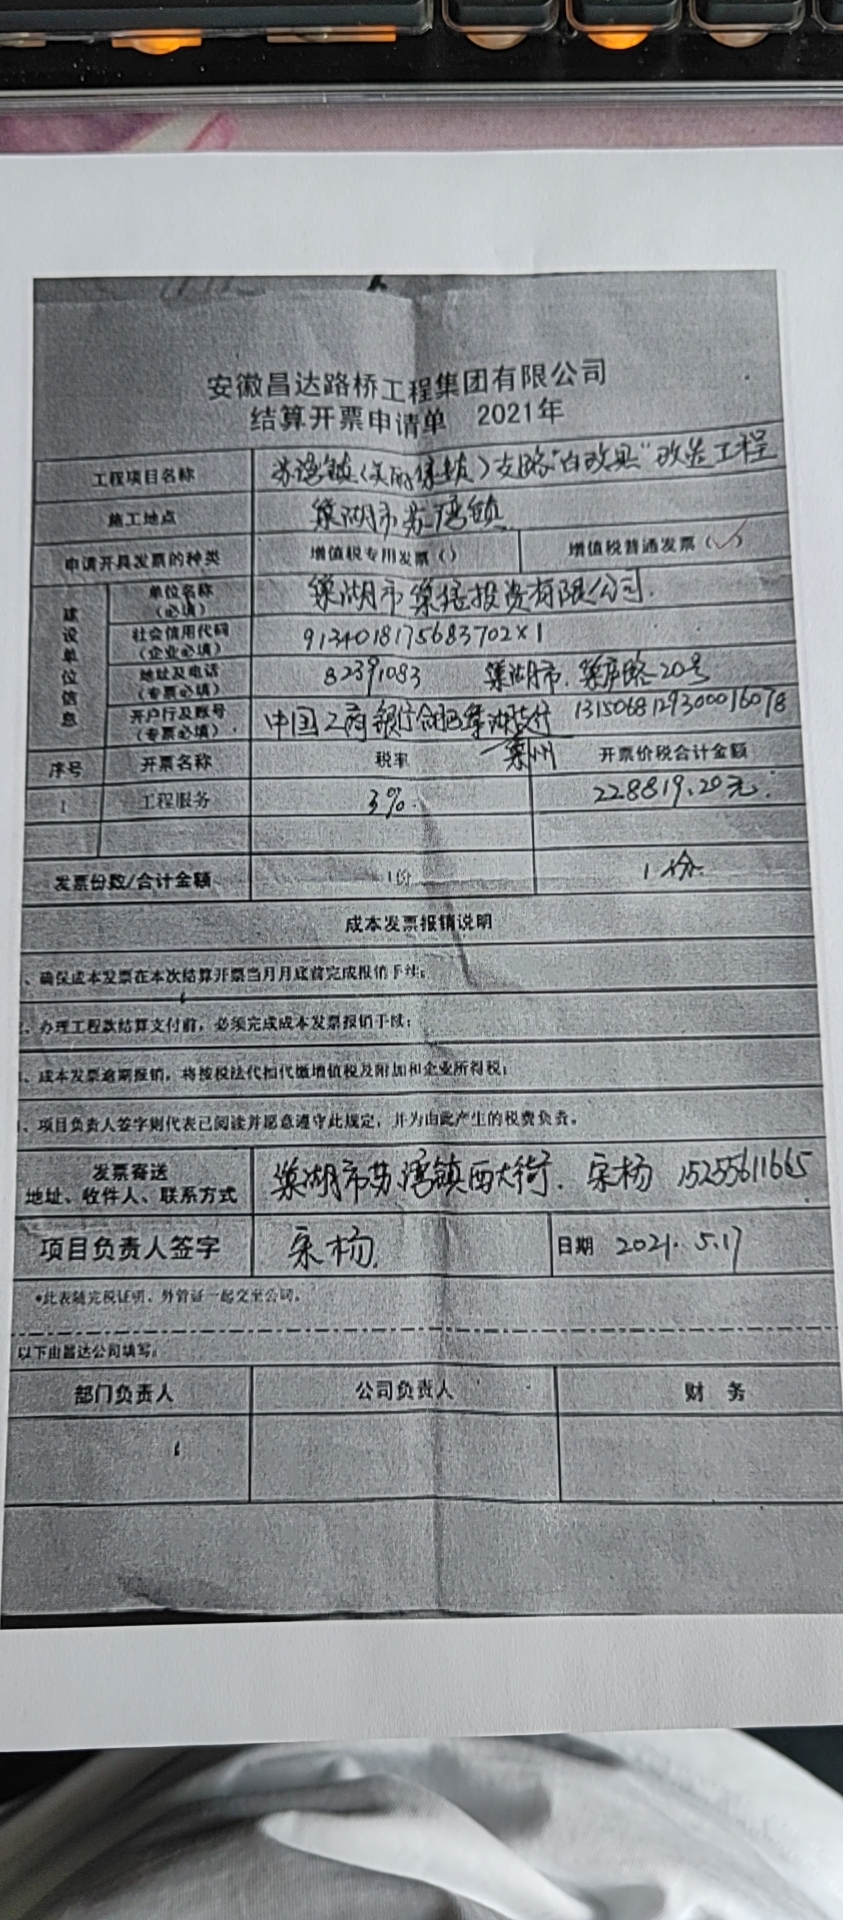 安徽昌达路桥工程集团有限公司
结算开票申请单 2021年
工程项目名称 苏湾镇（美丽集镇）支路"白改黑"改造工程
施工地点 巢湖市苏湾镇
申请开具发票的种类 增值税专用发票（） 增值税普通发票（✓）
建设单位信息
单位名称（必填） 巢湖市巢 投资有限公司.
社会信用代码（企业必填） 9134018175683702X1
地址及电话（专票必填） 82391083 巢湖市.巢庐路20号
开户行及账号（专票必填） 中国工商银行合肥巢湖 支行 1315068129300016078
巢州
序号 开票名称 税率 开票价税合计金额
1 工程服务 3%. 228819.20元.
发票份数/合计金额 1份 1份.
成本发票报销说明
、确保成本发票在本次结算开票当月月底前完成报销手续；
、办理工程款结算支付前，必须完成成本发票报销手续；
、成本发票逾期报销，将按税法代扣代缴增值税及附加和企业所得税；
、项目负责人签字则代表已阅读并愿意遵守此规定，并为由此产生的税费负责。
发票寄送
地址、收件人、联系方式 巢湖市苏湾镇西大街. 宋杨 15255611665
项目负责人签字 宋杨. 日期 2021.5.17
*此表随完税证明、外管证一起交至公司。
以下由昌达公司填写：
部门负责人 公司负责人 财 务